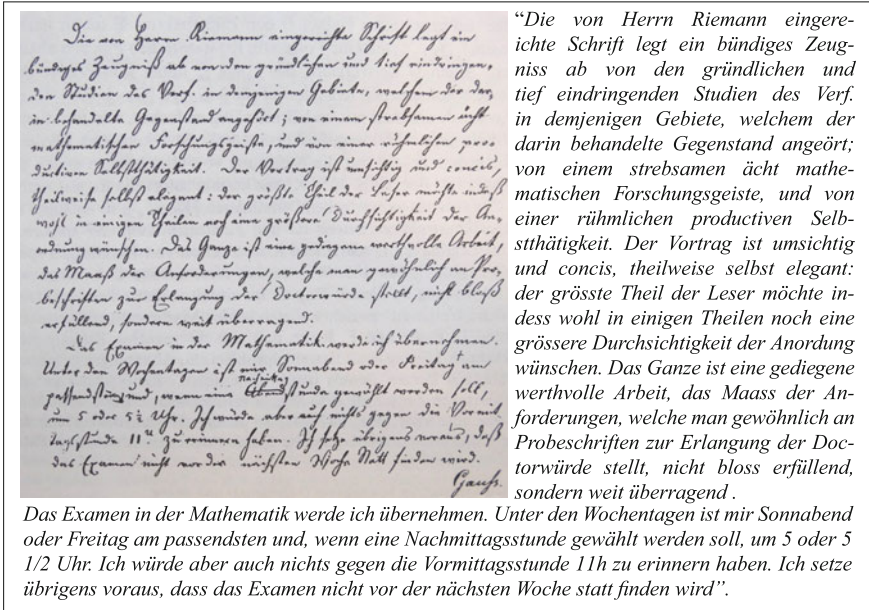 Die von Herrn Riemann eingereichte Schrift legt ein
bündiges Zeugniß ab von den gründlichen und tief eindringen,
den Studien des Verf. in demjenigen Gebiete, welchem der dar,
in behandelte Gegenstand angehört; von einem strebsamen ächt
mathematischen Forschungsgeiste, und von einer rühmlichen pro-
ductiven Selbstthätigkeit. Der Vortrag ist umsichtig und concis,
theilweise selbst elegant: der größte Theil der Leser möchte indeß
wohl in einigen Theilen noch eine größere Durchsichtigkeit der An,
ordnung wünschen. Das Ganze ist eine gediegene werthvolle Arbeit,
das Maaß der Anforderungen, welche man gewöhnlich an Pro,
beschriften zur Erlangung der Doctorwürde stellt, nicht bloß
erfüllend, sondern weit überragend.
Das Examen in der Mathematik werde ich übernehmen.
Unter den Wochentagen ist mir Sonnabend oder Freitag am
passendsten und, wenn eine Nachmittagsstunde gewählt werden soll,
um 5 oder 5½ Uhr. Ich würde aber auch nichts gegen die Vormit
tagsstunde 11 zu erinnern haben. Ich setze übrigens voraus, daß
das Examen nicht vor der nächsten Woche Statt finden wird.
Gauß.
“Die von Herrn Riemann eingere-
ichte Schrift legt ein bündiges Zeug-
niss ab von den gründlichen und
tief eindringenden Studien des Verf.
in demjenigen Gebiete, welchem der
darin behandelte Gegenstand angeört;
von einem strebsamen ächt mathe-
matischen Forschungsgeiste, und von
einer rühmlichen productiven Selb-
stthätigkeit. Der Vortrag ist umsichtig
und concis, theilweise selbst elegant:
der grösste Theil der Leser möchte in-
dess wohl in einigen Theilen noch eine
grössere Durchsichtigkeit der Anordung
wünschen. Das Ganze ist eine gediegene
werthvolle Arbeit, das Maass der An-
forderungen, welche man gewöhnlich an
Probeschriften zur Erlangung der Doc-
torwürde stellt, nicht bloss erfüllend,
sondern weit überragend .
Das Examen in der Mathematik werde ich übernehmen. Unter den Wochentagen ist mir Sonnabend
oder Freitag am passendsten und, wenn eine Nachmittagsstunde gewählt werden soll, um 5 oder 5
1/2 Uhr. Ich würde aber auch nichts gegen die Vormittagsstunde 11h zu erinnern haben. Ich setze
übrigens voraus, dass das Examen nicht vor der nächsten Woche statt finden wird”.